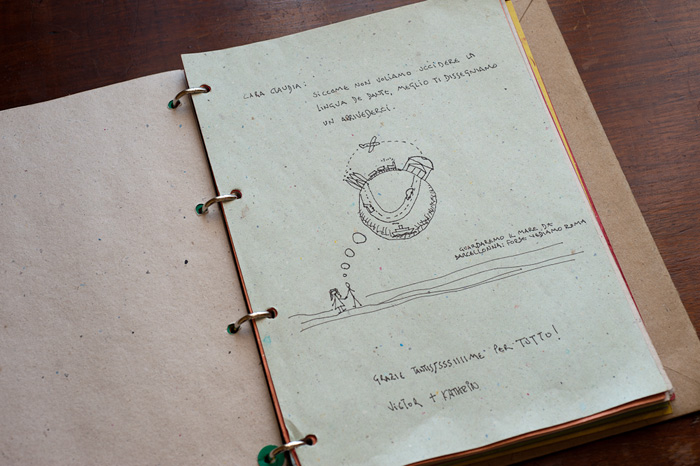 CARA CLAUDIA: SICCOME NON VOLIAMO UCCIDERE LA
LINGUA DE DANTE, MEGLIO TI DISSEGNIAMO
UN ARRIVEDERCI.
GUARDARAMO IL MARE DA
BARCELLONNA. FORSO VEDIAMO ROMA
GRAZIE TANTISSSSSIIIIME PER TUTTO!
VICTOR + KATHRIN